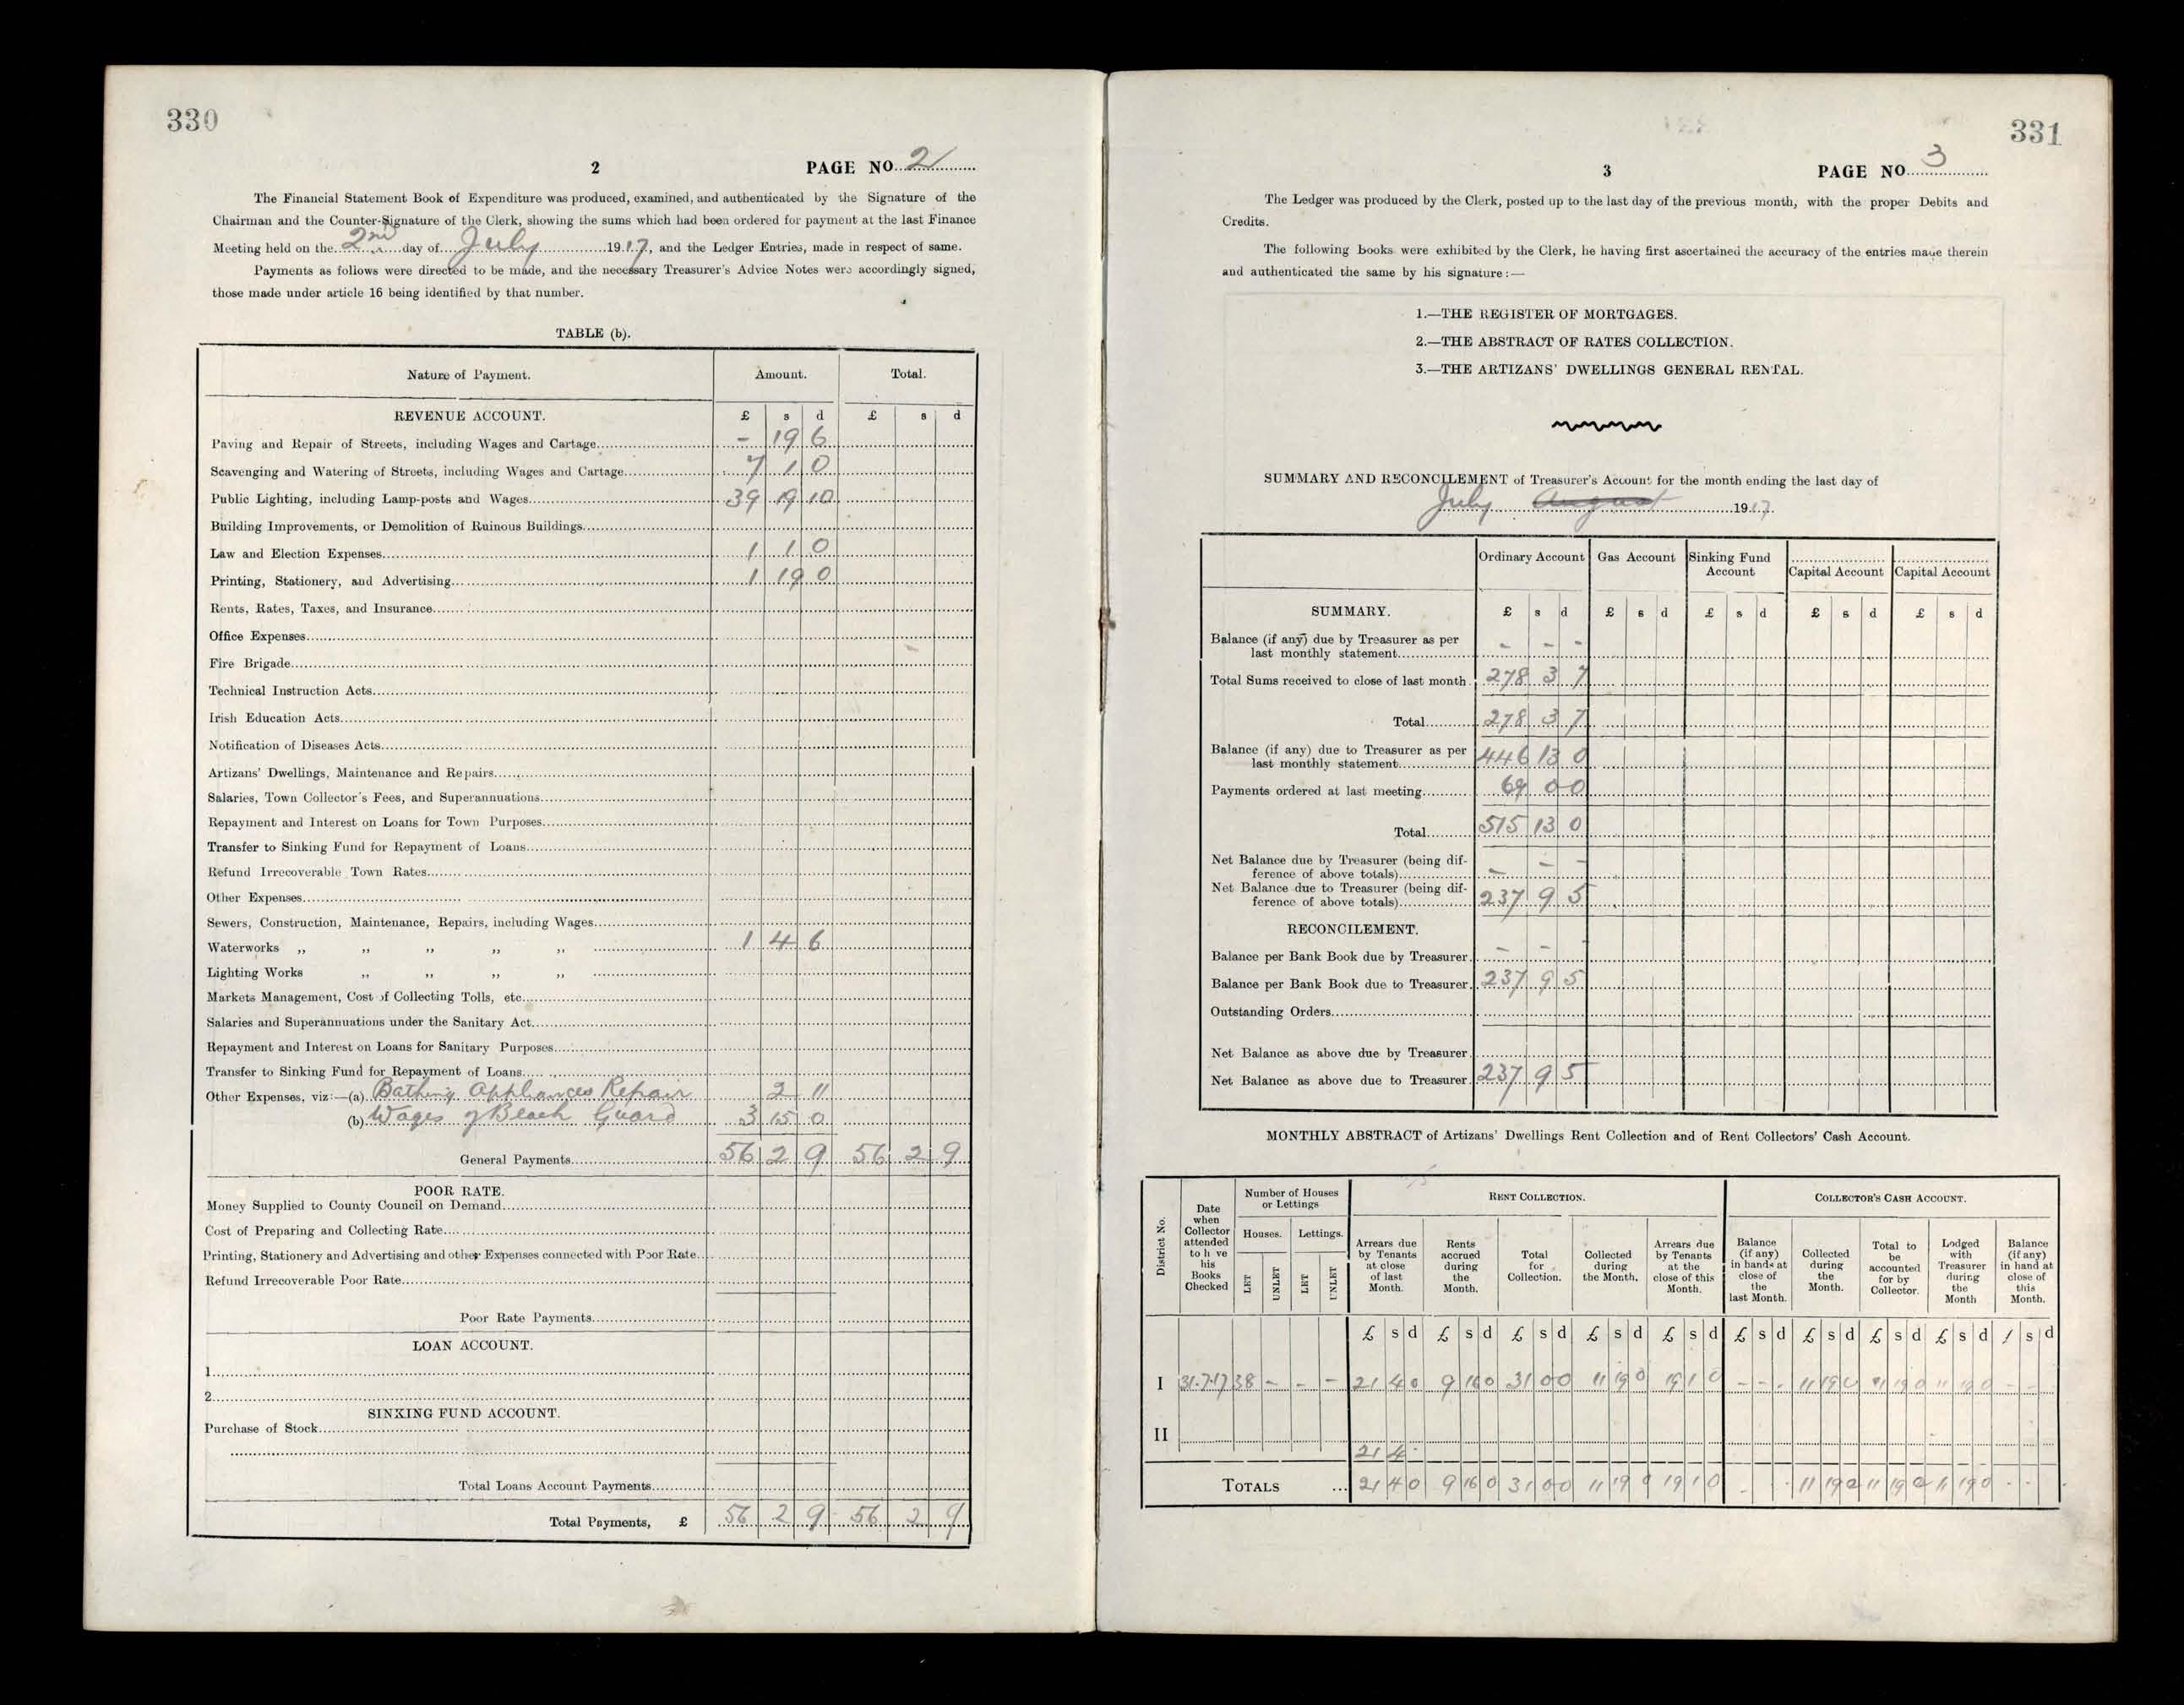 330
2 PAGE NO. 2
The Financial Statement Book of Expenditure was produced, examined, and authenticated by the Signature of the
Chairman and the Counter-Signature of the Clerk, showing the sums which had been ordered for payment at the last Finance
Meeting held on the 2nd day of July 1917, and the Ledger Entries, made in respect of same.
Payments as follows were directed to be made, and the necessary Treasurer's Advice Notes were accordingly signed,
those made under article 16 being identified by that number.
TABLE (b).
Nature of Payment. Amount. Total.
REVENUE ACCOUNT. £ s d £ s d
Paving and Repair of Streets, including Wages and Cartage - 19 6
Scavenging and Watering of Streets, including Wages and Cartage 7 1 0
Public Lighting, including Lamp-posts and Wages 39 19 10
Building Improvements, or Demolition of Ruinous Buildings
Law and Election Expenses 1 1 0
Printing, Stationery, and Advertising 1 19 0
Rents, Rates, Taxes, and Insurance
Office Expenses
Fire Brigade
Technical Instruction Acts
Irish Education Acts
Notification of Diseases Acts
Artizans' Dwellings, Maintenance and Repairs
Salaries, Town Collector's Fees, and Superannuations
Repayment and Interest on Loans for Town Purposes
Transfer to Sinking Fund for Repayment of Loans
Refund Irrecoverable Town Rates
Other Expenses
Sewers, Construction, Maintenance, Repairs, including Wages
Waterworks ,, ,, ,, ,, ,, 1 4 6
Lighting Works ,, ,, ,, ,,
Markets Management, Cost of Collecting Tolls, etc
Salaries and Superannuations under the Sanitary Act
Repayment and Interest on Loans for Sanitary Purposes
Transfer to Sinking Fund for Repayment of Loans
Other Expenses, viz:—(a) Bathing Appliances Repair 2 11
(b) Wages of Beach Guard 3 15 0
General Payments 56 2 9 56 2 9
POOR RATE.
Money Supplied to County Council on Demand
Cost of Preparing and Collecting Rate
Printing, Stationery and Advertising and other Expenses connected with Poor Rate
Refund Irrecoverable Poor Rate
Poor Rate Payments
LOAN ACCOUNT.
1
2
SINKING FUND ACCOUNT.
Purchase of Stock
Total Loans Account Payments
Total Payments, £ 56 2 9 56 2 9
331
3 PAGE NO. 3
The Ledger was produced by the Clerk, posted up to the last day of the previous month, with the proper Debits and
Credits.
The following books were exhibited by the Clerk, he having first ascertained the accuracy of the entries made therein
and authenticated the same by his signature:—
1.—THE REGISTER OF MORTGAGES.
2.—THE ABSTRACT OF RATES COLLECTION.
3.—THE ARTIZANS' DWELLINGS GENERAL RENTAL.
SUMMARY AND RECONCILEMENT of Treasurer's Account for the month ending the last day of
July August 1917.
Ordinary Account Gas Account Sinking Fund Account Capital Account Capital Account
SUMMARY. £ s d £ s d £ s d £ s d £ s d
Balance (if any) due by Treasurer as per
last monthly statement - - -
Total Sums received to close of last month 278 3 7
Total 278 3 7
Balance (if any) due to Treasurer as per
last monthly statement 446 13 0
Payments ordered at last meeting 69 0 0
Total 515 13 0
Net Balance due by Treasurer (being dif-
ference of above totals) - - -
Net Balance due to Treasurer (being dif-
ference of above totals) 237 9 5
RECONCILEMENT.
Balance per Bank Book due by Treasurer - -
Balance per Bank Book due to Treasurer 237 9 5
Outstanding Orders
Net Balance as above due by Treasurer
Net Balance as above due to Treasurer 237 9 5
MONTHLY ABSTRACT of Artizans' Dwellings Rent Collection and of Rent Collectors' Cash Account.
District No.
Date when Collector attended to h ve his Books Checked
Number of Houses or Lettings
Houses. Lettings.
LET UNLET LET UNLET
RENT COLLECTION.
Arrears due by Tenants at close of last Month.
Rents accrued during the Month.
Total for Collection.
Collected during the Month.
Arrears due by Tenants at the close of this Month.
COLLECTOR'S CASH ACCOUNT.
Balance (if any) in hands at close of the last Month.
Collected during the Month.
Total to be accounted for by Collector.
Lodged with Treasurer during the Month
Balance (if any) in hand at close of this Month.
£ s d £ s d £ s d £ s d £ s d £ s d £ s d £ s d £ s d £ s d
I 31.7.17 38 - - - 21 4 0 9 16 0 31 0 0 11 19 0 19 1 0 - - - 11 19 0 11 19 0 11 19 0 - -
II
21 4
TOTALS ... 21 4 0 9 16 0 31 0 0 11 19 0 19 1 0 - - 11 19 0 11 19 0 11 19 0 - -